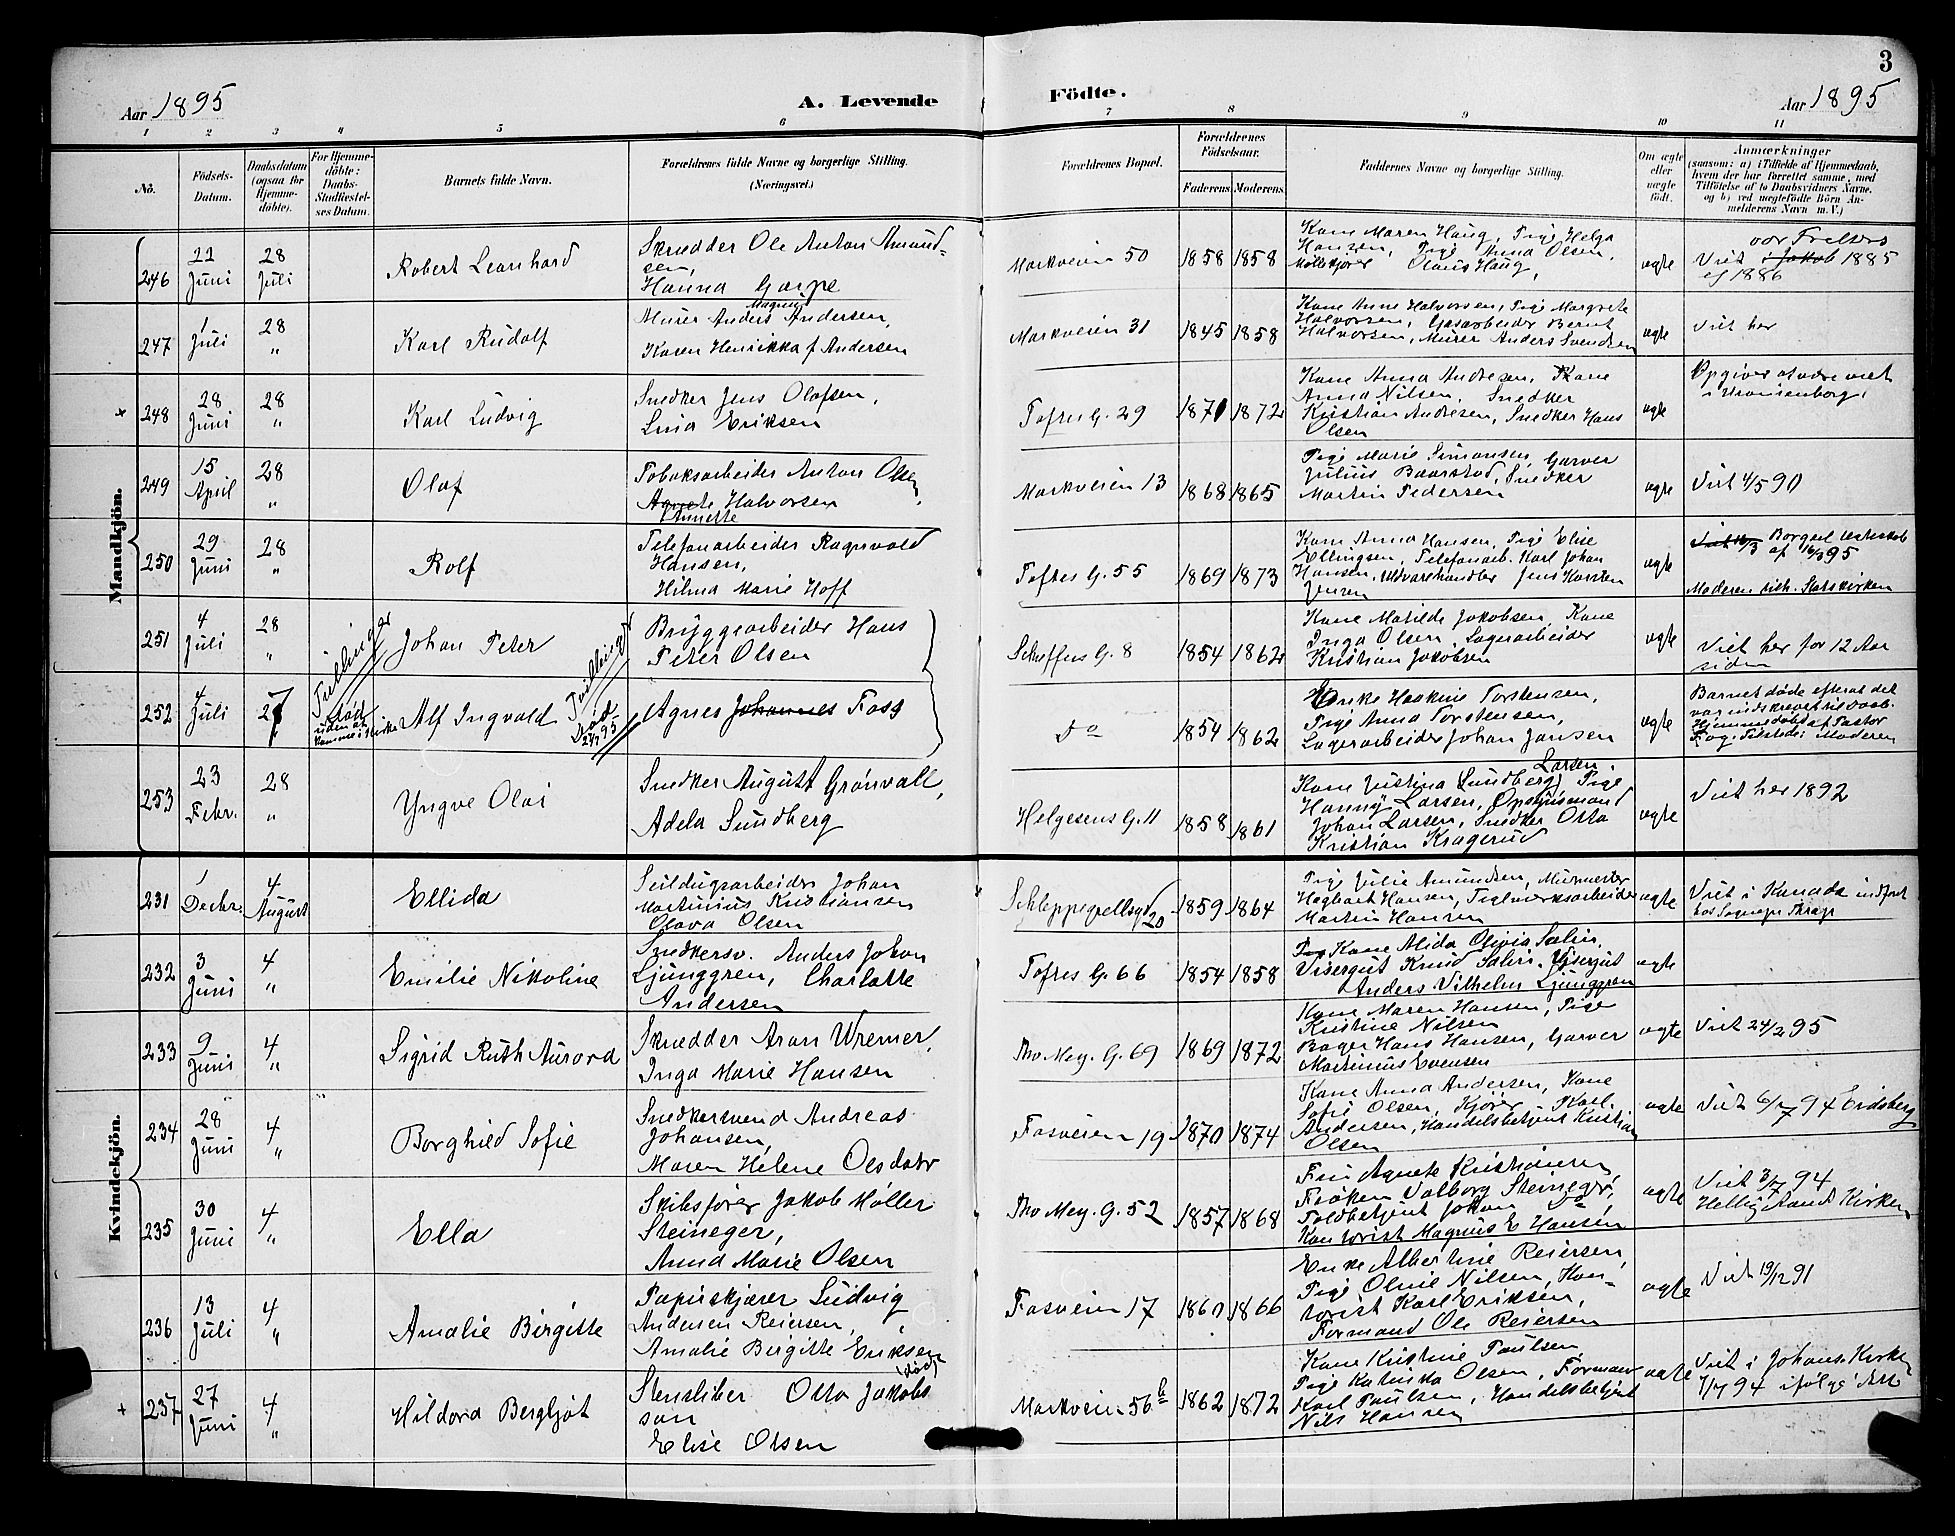 3
Aar 1895
A. Levende
Födte.
Aar 1895
1 2 3 4 5 6 7 8 9 10 11
No.
Födsels-
Datum.
Daabsdatum
(ogsaa for
Hjemme-
döbte).
For Hjemme-
döbte:
Daabs-
Stadfæstel-
ses Datum.
Barnets fulde Navn.
Forældrenes fulde Navne og borgerlige Stilling.
(Næringsvei.)
Forældrenes Bopæl.
Forældrenes
Födselsaar.
Faderens. Moderens.
Faddernes Navne og borgerlige Stilling.
Om ægte
eller
uægte
födt.
Anmærkninger
(saasom: a) i Tilfælde af Hjemmedaab,
hvem der har forrettet samme, med
Tilföielse af to Daabsvidners Navne,
og b) ved uægtefödte Börn An-
melderens Navn m. V.)
Mandkjön.
246
22
Juni
28
Juli
Robert Leonhard
Skrædder Ole Anton Amund-
sen,
Hanna Garpe
Markveien 50
1858 1858
Kone Maren Haug, Pige Helga
Hansen, Pige Anna Olsen,
Olaus Haug,
ægte
vor Frelsers
Viet i Jakob 1885
ej 1886
247
1
Juli
28
"
Karl Rudolf
Magnus
Murer Anders Andersen,
Karen Henrikka f Andersen
Markveien 31
1845 1858
Kone Anne Halvorsen, Pige Margrete
Halvorsen, Gasarbeider Bernt
Halvorsen, Murer Anders Svendsen
ægte
Viet her
+
248
28
Juni
28
"
Karl Ludvig
Snedker Jens Olafsen,
Lina Eriksen
Toftes G. 29
1871 1872
Kone Anna Andresen, Kone
Anna Nilsen, Snedker
Kristian Andresen, Snedker Hans
Olsen
ægte
Opgiver at være viet
i Uranienborg.
249
15
April
28
"
Olaf
Tobaksarbeider Anton Olsen,
Agnete Halvorsen
Annette
Markveien 13
1868 1865
Pige Marie Simonsen, Garver
Julius Baarstad, Snedker
Martin Pedersen
ægte
Viet 4/5 90
250
29
Juni
28
"
Rolf
Telefonarbeider Ragnvald
Hansen,
Hilma Marie Hoff
Toftes G. 55
1869 1873
Kone Anna Hansen, Pige Elise
Ellingsen, Telefonarb. Karl Johan
Hansen, Udvarehandler Jens Karsten
Jensen
ægte
Borgerl Ægteskab
af 16/3 95
Moderen tilh. Statskirken
251
4
Juli
28
"
Tvillinger
Johan Peter
Tvillinger
Bryggearbeider Hans
Peter Olsen
Scheffus G. 8
1854 1862
Kone Matilde Jakobsen, Kone
Inga Olsen, Lagerarbeider
Kristian Jakobsen
ægte
Viet her for 12 Aar
siden
252
4
Juli
27
død
uden at
komme i Kirke
Alf Ingvald
Død
27/7 95
Agnes Johannes Foss
Do
1854 1862
Enke Haakine Torstensen,
Pige Anna Torstensen,
Lagerarbeider Johan Jansen
ægte
Barnet døde efterat det
var indskrevet til Daab.
Hjemmedøbt af Pastor
Fog. Tilstede: Moderen
253
23
Febr.
28
"
Yngve Olai
Snedker August Grönvall,
Adela Sundberg
Helgesens G. 11
1858 1861
Larsen
Kone Justina (Sundberg) Pige
Hanny Larsen, Opsynsmand
Johan Larsen, Snedker Otto
Kristian Kragerud
ægte
Viet her 1892
Kvindekjön.
231
1
Decbr.
4
August
Ellida
Seildugsarbeider Johan
Martinius Kristiansen
Olava Olsen
Schleppegrellsgd 20
1859 1864
Pige Julie Amundsen, Murmester
Hagbart Hansen, Teglverksarbeider
Martin Hansen
ægte
Viet i Kanada indført
hos Sognepr Thrap
232
3
Juni
4
"
Emilie Nikoline
Snedkersv. Anders Johan
Ljunggren, Charlotte
Andersen
Toftes G. 66
1854 1858
Pig Kone Alida Olivia Salin,
Visergut Knud Salin, Visergut
Anders Vilhelm Ljunggren
ægte
233
9
Juni
4
"
Sigrid Ruth Aurora
Skrædder Aron Wremer,
Inga Marie Hansen
Tho Mey. G. 69
1869 1872
Kone Maren Hansen, Pige
Kristine Nilsen
Bager Hans Hansen, Garver
Martinius Evensen
ægte
Viet 24/2 95
234
28
Juni
4
"
Borghild Sofie
Snedkersvend Andreas
Johansen,
Maren Helene Olsdatr
Fosveien 19
1870 1874
Kone Anna Andersen, Kone
Sofie Olsen, Kjører Karl
Andersen, Handelsbetjent Kristian
Olsen
ægte
Viet 6/7 94 Eidsberg
235
30
Juni
4
"
Ella
Skibsfører Jakob Møller
Steineger,
Anna Marie Olsen
Tho Mey. G. 52
1857 1868
Fru Agnete Kristiansen
Frøken Valborg Steineger,
Toldbetjent Johan Do
Kontorist Magnus E Hansen
ægte
Viet 3/7 94
Hellig Aands Kirken
236
13
Juli
4
"
Amalie Birgitte
Papirskjærer Ludvig
Andersen Reiersen,
Amalie Birgitte Eriksen
(død)
Fosveien 17
1860 1866
Enke Albertine Reiersen,
Pige Oluie Nilsen, Kon-
torist Karl Eriksen,
Formand Ole Reiersen
ægte
Viet 19/12 91
+
237
27
Juni
4
"
Hildora Bergljot
Stensliber Otto Jakobs
son
Elise Olsen
Markveien 56 b
1862 1872
Kone Kristine Paulsen
Pige Katinka Olsen, Formand
Karl Paulsen, Handelsbetjent
Nils Hansen
ægte
Viet i Johans Kirken
1/7 94 ifølge Att